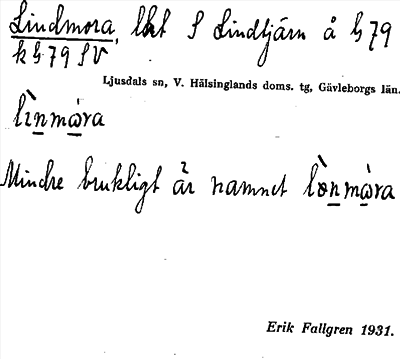 Lindmora, lht S Lindtjärn å h 79
k h 79 S V
Ljusdals sn, V. Hälsinglands doms. tg, Gävleborgs län.
lìn̲mὼ̲ra
Mindre brukligt är namnet lòn̲mὼ̲ra
Erik Fallgren 1931.